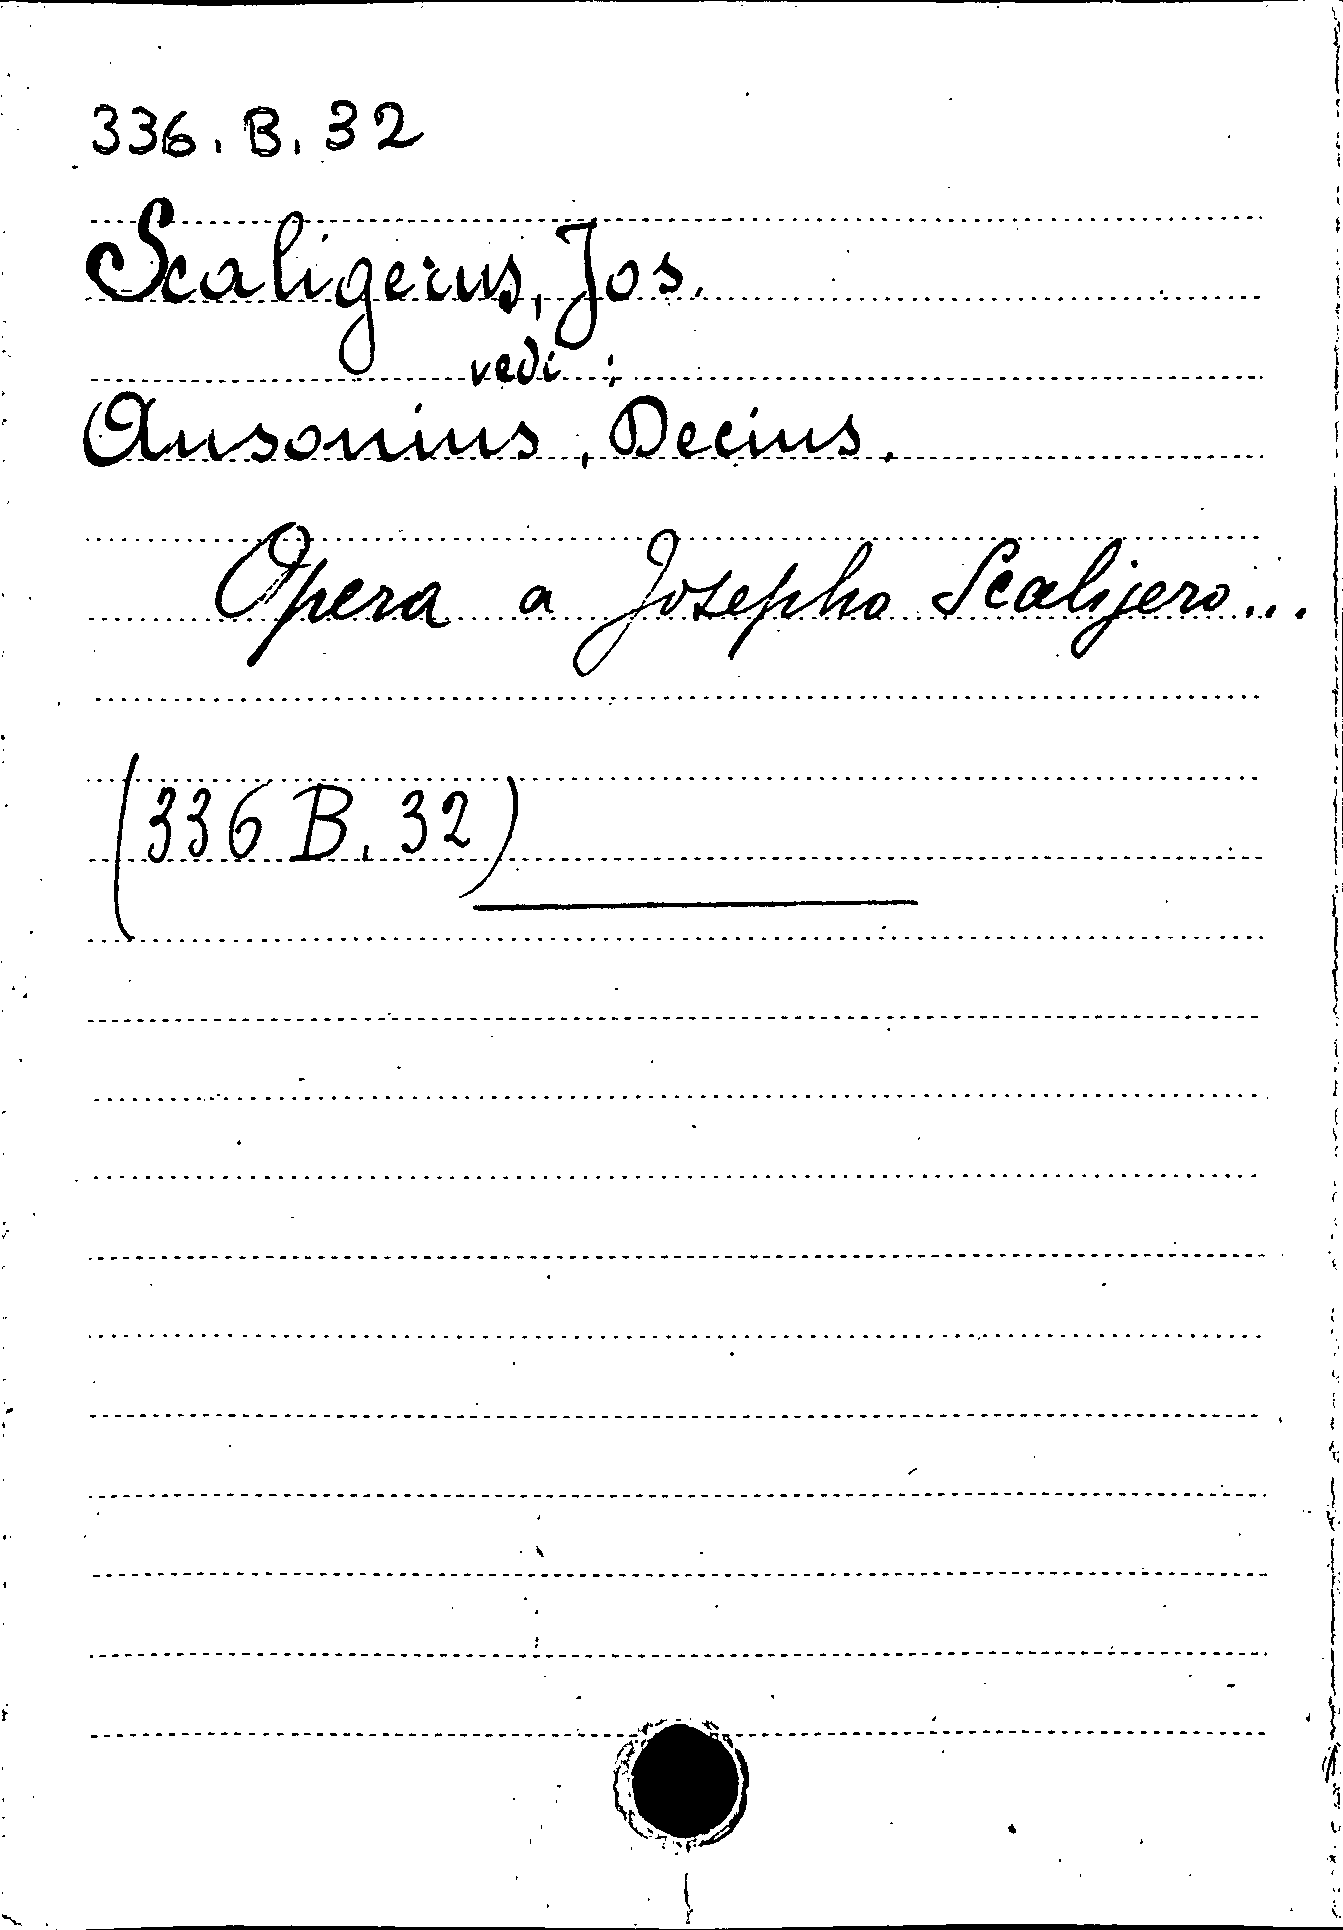 336. B. 32
Scaligerus, Jos.
vedi:
Ausonius, Decius.
Opera a Josepho Scaligero...
(336 B. 32)